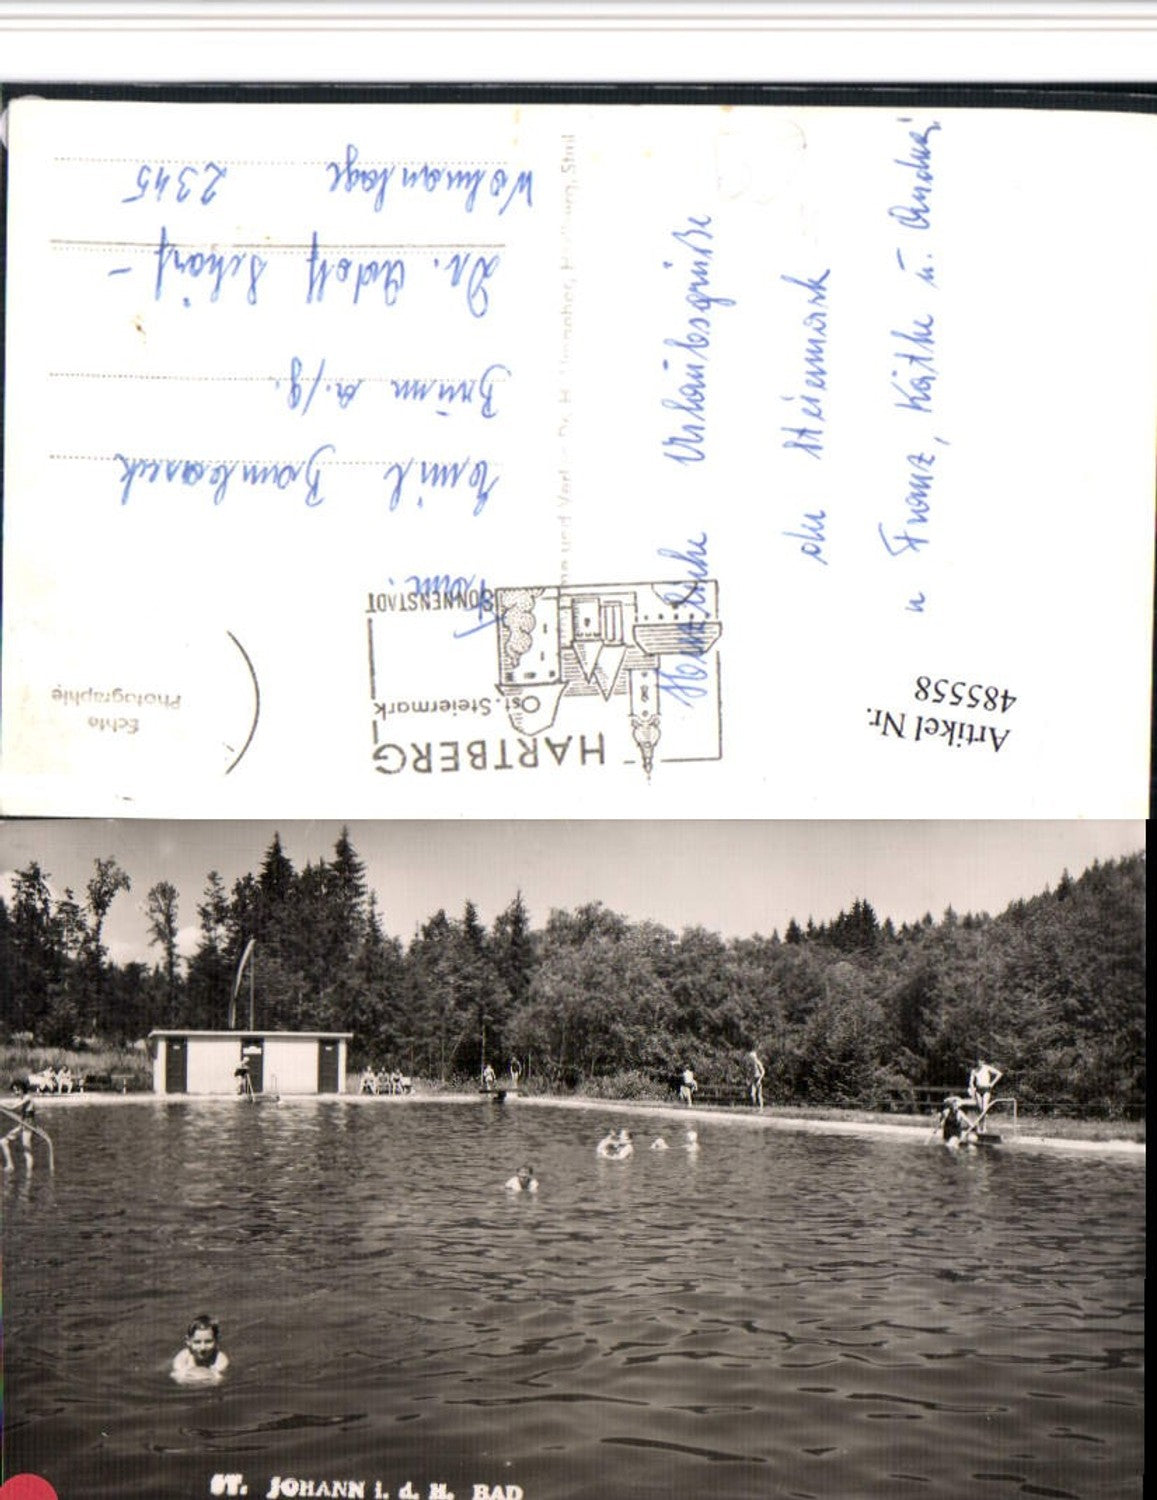 Artikel Nr.
485558
HARTBERG
Ost. Steiermark
SONNENSTADT
Echte
Photographie
Fam.
Emil
Brünn a./g.
Dr. Adolf Schärf -
Wohnanlage 2345
Herzliche Urlaubsgrüße
der Steiermark
Franz, Käthe u. Andrea
ST. JOHANN i. d. H. BAD